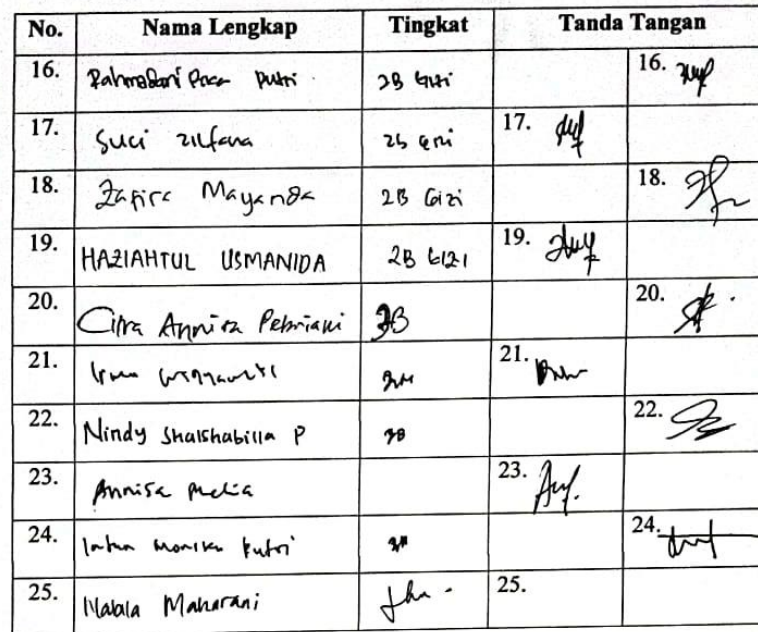 No. Nama Lengkap Tingkat Tanda Tangan
16. Putri 2B Gizi 16.
17. Suci Zilfana 2B Gizi 17.
18. Zafira Mayanda 2B Gizi 18.
19. HAZIAHTUL USMANIDA 2B GIZI 19.
20. Citra Annisa Pebriani 3B 20.
21. 21.
22. Nindy Shalshabilla P 3B 22.
23. Annisa Melia 23.
24. Intan Monika Putri 24.
25. Maharani 25.